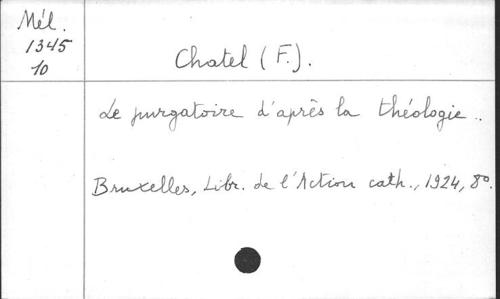 Mél.
1345
10
Chatel (F.).
Le purgatoire d'après la théologie..
Bruxelles, Libr. de l'Action cath., 1924, 8º.